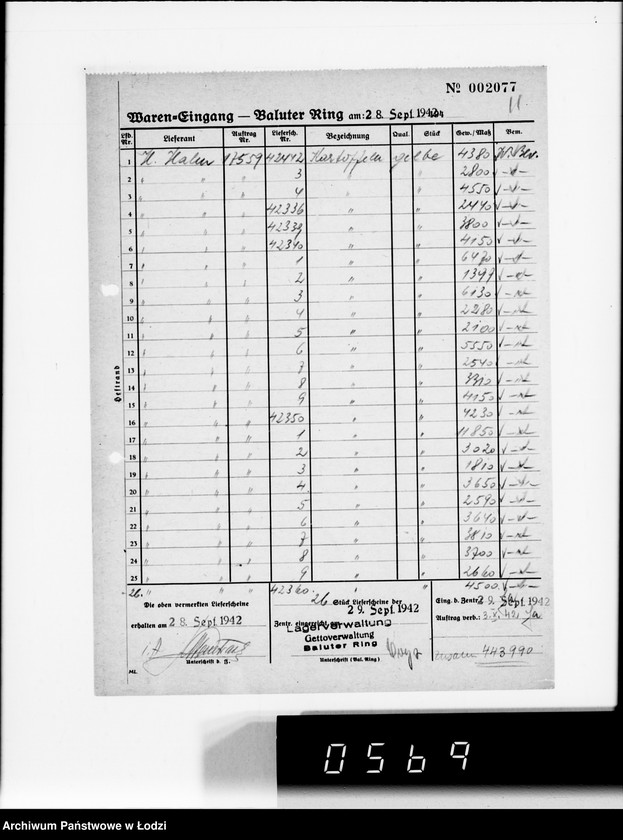 Nº 002077
11.
Waren=Eingang — Baluter Ring am: 28. Sept. 1942
Lfd. Nr. Lieferant Auftrag Nr. Liefersch. Nr. Bezeichnung Qual. Stück Gew./Maß Bem.
1 17559 42412 Kartoffeln gelbe 4380
2 " " " 3 " " 2800
3 " " " 4 " " 4550
4 " " " 42336 " " 2440
5 " " " 42339 " " 3800
6 " " " 42340 " " 4150
7 " " " 1 " " 6470
8 " " " 2 " " 1397
9 " " " 3 " " 6130
10 " " " 4 " " 2280
11 " " " 5 " " 2100
12 " " " 6 " " 5550
13 " " " 7 " " 2540
14 " " " 8 " "
15 " " " 9 " " 4150
16 " " " 42350 " " 4230
17 " " " 1 " " 11850
18 " " " 2 " " 3020
19 " " " 3 " " 1810
20 " " " 4 " " 3650
21 " " " 5 " " 2590
22 " " " 6 " " 3640
23 " " " 7 " " 3810
24 " " " 8 " " 3700
25 " " " 9 " " 2660
26. " " " 42360 " " 4500
Heftrand
Die oben vermerkten Lieferscheine
erhalten am 28. Sept. 1942
i.A.
Unterschrift d. Z.
26 Stück Lieferscheine der
29. Sept. 1942
Zentr. eingereicht am
Lagerverwaltung
Gettoverwaltung
Baluter Ring
Unterschrift (Bal. Ring)
Eing. b. Zentr. 29. Sept. 1942
Auftrag verb.:
443990
0569
Archiwum Państwowe w Łodzi